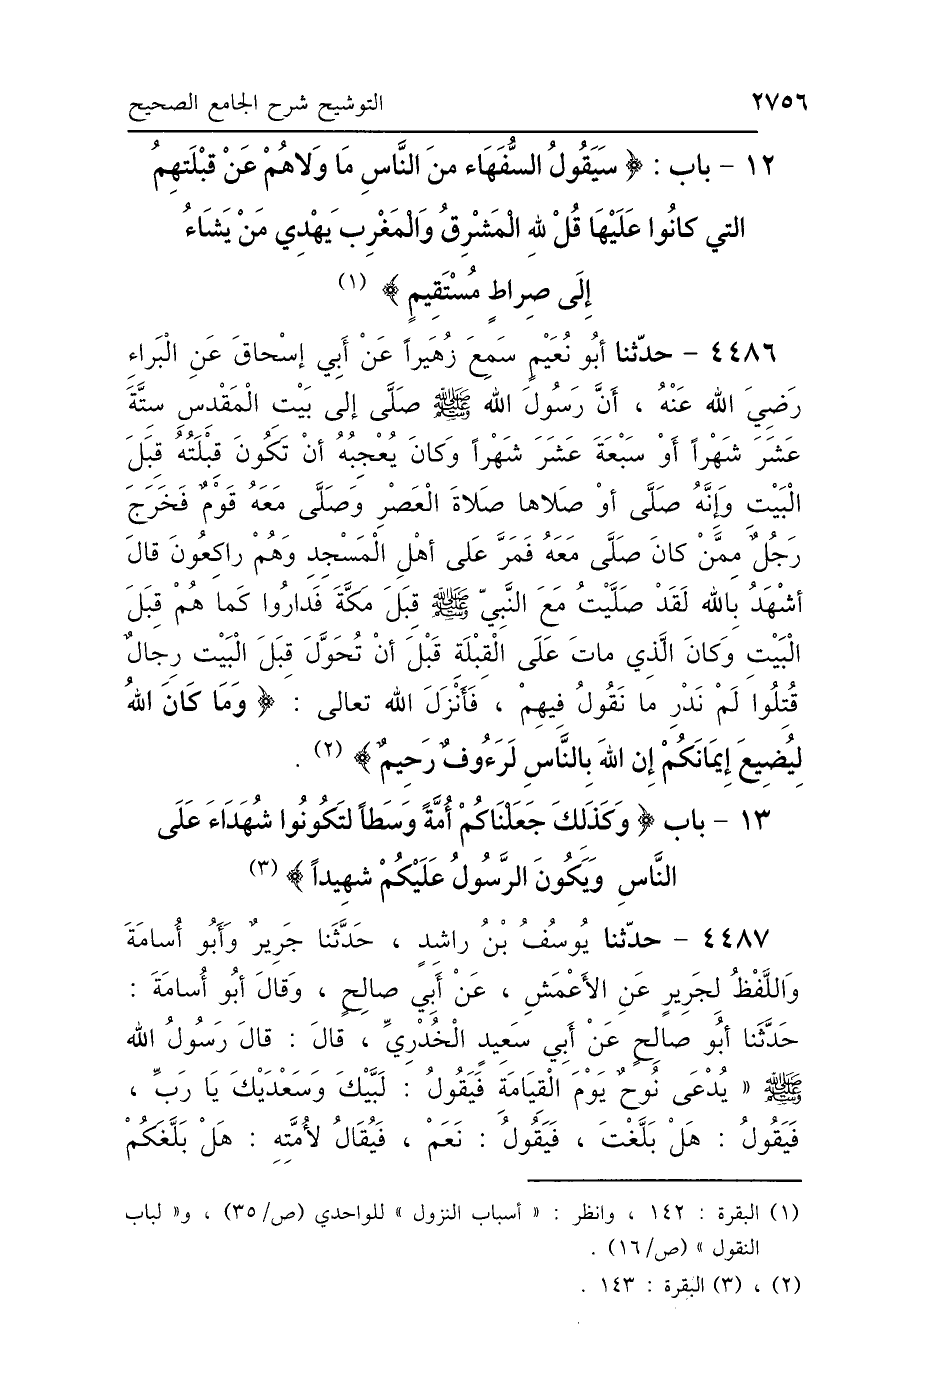 ٢٧٥٦ التوشيح شرح الجامع الصحيح
١٢ - باب : ﴿ سَيَقُولُ السُّفَهَاء منَ النَّاسِ مَا وَلاهُمْ عَنْ قبْلَتهِمُ
التي كانُوا عَلَيْهَا قُلْ لله الْمَشْرِقُ وَالْمَغْرِب يَهْدِي مَنْ يَشَاءُ
إلَى صِراطٍ مُسْتَقِيمٍ ﴾ (١)
٤٤٨٦ - حدّثنا أبُو نُعَيْمٍ سَمِعَ زُهَيراً عَنْ أَبِي إسْحاقَ عَنِ الْبَراءِ
رَضِيَ الله عَنْهُ ، أَنَّ رَسُولَ الله ﷺ صلَّى إلى بَيْتِ الْمَقْدِسِ ستَّةَ
عَشَرَ شهْراً أَوْ سَبْعَةَ عَشَرَ شهْراً وَكانَ يُعْجِبُهُ أنْ تَكُونَ قِبْلَتُهُ قِبَلَ
الْبَيْتِ وَإنَّهُ صَلَّى أوْ صَلاها صَلاةَ الْعَصْرِ وَصَلَّى مَعَهُ قَوْمٌ فَخَرَجَ
رَجُلٌ ممَّنْ كانَ صَلَّى مَعَهُ فَمَرَّ عَلى أهْلِ الْمَسْجِدِ وَهُمْ راكعُونَ قالَ
أشْهَدُ بِالله لَقَدْ صَلَّيْتُ مَعَ النَّبيّ ﷺ قِبَلَ مَكَّةَ فَدارُوا كَما هُمْ قبَلَ
الْبَيْتِ وَكانَ الَّذِي ماتَ عَلَى الْقِبْلَةِ قَبْلَ أنْ تُحَوَّلَ قِبَلَ الْبَيْتِ رِجالٌ
قُتلُوا لَمْ نَدْرِ ما نَقُولُ فيهِمْ ، فَأَنْزَلَ الله تعالى : ﴿ وَمَا كَانَ اللهُ
لِيُضِيعَ إيمَانَكُمْ إن اللهَ بالنَّاسِ لَرَءُوفٌ رَحِيمٌ ﴾ (٢) .
١٣ - باب ﴿ وَكَذَلِكَ جَعَلْنَاكُمْ أُمَّةً وَسَطاً لتَكُونُوا شُهَدَاءَ عَلَى
النَّاسِ وَيَكُونَ الرَّسُولُ عَلَيْكُمْ شهِيداً ﴾ (٣)
٤٤٨٧ - حدّثنا يُوسُفُ بْنُ راشِدٍ ، حَدَّثَنا جَرِيرٌ وَأَبُو أُسامَةَ
وَاللَّفْظُ لِجَرِيرٍ عَنِ الأَعْمَشِ ، عَنْ أَبِي صالِحٍ ، وَقالَ أبُو أُسامَةَ :
حَدَّثَنا أبُو صالحٍ عَنْ أبِي سَعِيدٍ الْخُدْرِيِّ ، قالَ : قالَ رَسُولُ الله
ﷺ « يُدْعَى نُوحٌ يَوْمَ الْقِيَامَةِ فَيَقُولُ : لَبَّيْكَ وَسَعْدَيْكَ يَا رَبِّ ،
فَيَقُولُ : هَلْ بَلَّغْتَ ، فَيَقُولُ : نَعَمْ ، فَيُقَالُ لأُمَّتِهِ : هَلْ بَلَّغَكُمْ
(١) البقرة : ١٤٢ ، وانظر : « أسباب النزول » للواحدي (ص/٣٥) ، و« لباب
النقول » (ص/١٦) .
(٢) ، (٣) البقرة : ١٤٣ .